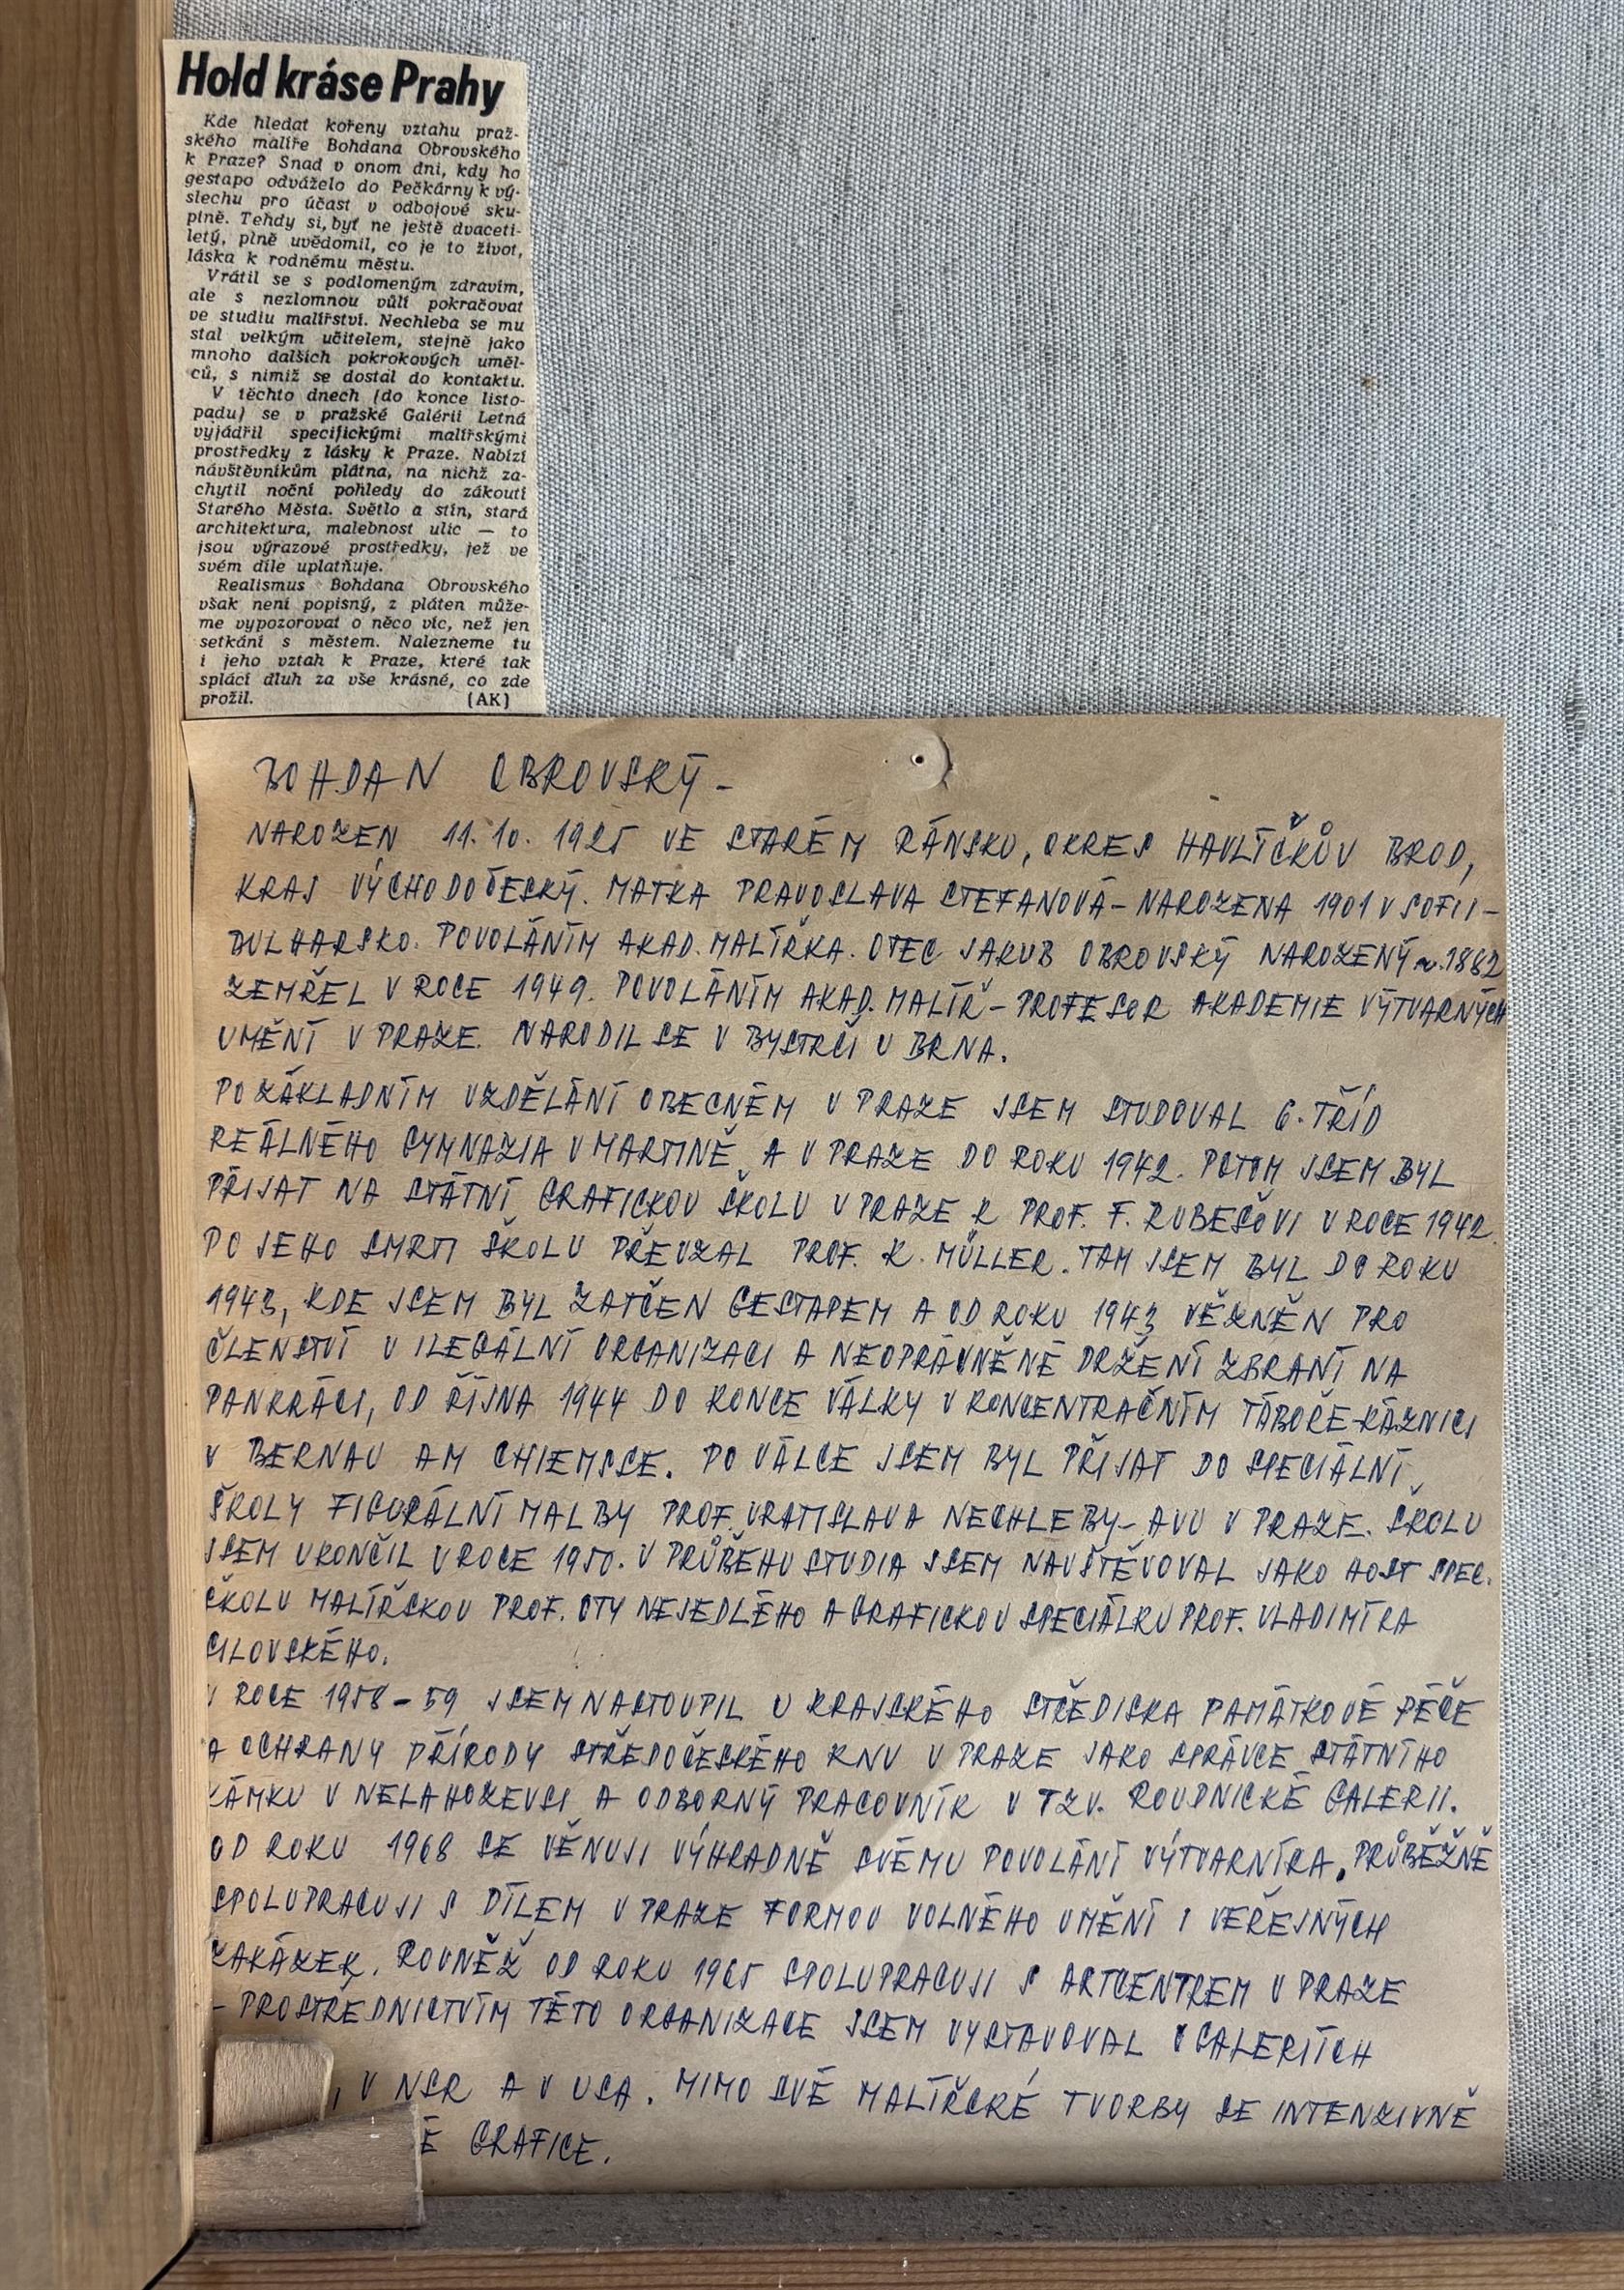 Hold kráse Prahy
Kde hledat kořeny vztahu praž-
ského malíře Bohdana Obrovského
k Praze? Snad v onom dni, kdy ho
gestapo odváželo do Pečkárny k vý-
slechu pro účast v odbojové sku-
pině. Tehdy si, byť ne ještě dvaceti-
letý, plně uvědomil, co je to život,
láska k rodnému městu.
Vrátil se s podlomeným zdravím,
ale s nezlomnou vůlí pokračovat
ve studiu malířství. Nechleba se mu
stal velkým učitelem, stejně jako
mnoho dalších pokrokových uměl-
ců, s nimiž se dostal do kontaktu.
V těchto dnech (do konce listo-
padu) se v pražské Galérii Letná
vyjádřil specifickými malířskými
prostředky z lásky k Praze. Nabízí
návštěvníkům plátna, na nichž za-
chytil noční pohledy do zákoutí
Starého Města. Světlo a stín, stará
architektura, malebnost ulic — to
jsou výrazové prostředky, jež ve
svém díle uplatňuje.
Realismus Bohdana Obrovského
však není popisný, z pláten může-
me vypozorovat o něco víc, než jen
setkání s městem. Nalezneme tu
i jeho vztah k Praze, které tak
splácí dluh za vše krásné, co zde
prožil. (AK)
BOHDAN OBROVSKÝ -
NAROZEN 11. 10. 1925 VE STARÉM RÁNSKO, OKRES HAVLÍČKŮV BROD,
KRAJ VÝCHODOČESKÝ. MATKA PRAVOSLAVA STEFANOVÁ - NAROZENA 1901 V SOFII -
BULHARSKO. POVOLÁNÍM AKAD. MALÍŘKA. OTEC JAKUB OBROVSKÝ NAROZENÝ r. 1882
ZEMŘEL V ROCE 1949. POVOLÁNÍM AKAD. MALÍŘ - PROFESOR AKADEMIE VÝTVARNÝCH
UMĚNÍ V PRAZE. NARODIL SE V BYSTRCI U BRNA.
PO ZÁKLADNÍM VZDĚLÁNÍ OBECNÉM V PRAZE JSEM STUDOVAL 6. TŘÍD
REÁLNÉHO GYMNAZIA V MARTINĚ A V PRAZE DO ROKU 1942. POTOM JSEM BYL
PŘIJAT NA STÁTNÍ GRAFICKOU ŠKOLU V PRAZE K PROF. F. RUBEŠOVI V ROCE 1942.
PO JEHO SMRTI ŠKOLU PŘEVZAL PROF. K. MÜLLER. TAM JSEM BYL DO ROKU
1943, KDE JSEM BYL ZATČEN GESTAPEM A OD ROKU 1943 VĚZNĚN PRO
ČLENSTVÍ V ILEGÁLNÍ ORGANIZACI A NEOPRÁVNĚNÉ DRŽENÍ ZBRANÍ NA
PANKRÁCI, OD ŘÍJNA 1944 DO KONCE VÁLKY V KONCENTRAČNÍM TÁBOŘE-KÁZNICI
V BERNAU AM CHIEMSEE. PO VÁLCE JSEM BYL PŘIJAT DO SPECIÁLNÍ
ŠKOLY FIGURÁLNÍ MALBY PROF. VRATISLAVA NECHLEBY - AVU V PRAZE. ŠKOLU
JSEM UKONČIL V ROCE 1950. V PRŮBĚHU STUDIA JSEM NAVŠTĚVOVAL JAKO HOST SPEC.
ŠKOLU MALÍŘSKOU PROF. OTY NEJEDLÉHO A GRAFICKOU SPECIÁLKU PROF. VLADIMÍRA
SILOVSKÉHO.
V ROCE 1958 - 59 JSEM NASTOUPIL U KRAJSKÉHO STŘEDISKA PAMÁTKOVÉ PÉČE
A OCHRANY PŘÍRODY STŘEDOČESKÉHO KNV V PRAZE JAKO SPRÁVCE STÁTNÍHO
ZÁMKU V NELAHOZEVSI A ODBORNÝ PRACOVNÍK V TZV. ROUDNICKÉ GALERII.
OD ROKU 1968 SE VĚNUJI VÝHRADNĚ SVÉMU POVOLÁNÍ VÝTVARNÍKA. PRŮBĚŽNĚ
SPOLUPRACUJI S DÍLEM V PRAZE FORMOU VOLNÉHO UMĚNÍ I VEŘEJNÝCH
ZAKÁZEK. ROVNĚŽ OD ROKU 1965 SPOLUPRACUJI S ARTCENTREM V PRAZE
- PROSTŘEDNICTVÍM TÉTO ORGANIZACE JSEM VYSTAVOVAL V GALERIÍCH
, V NSR A V USA. MIMO SVÉ MALÍŘSKÉ TVORBY SE INTENZIVNĚ
É GRAFICE.